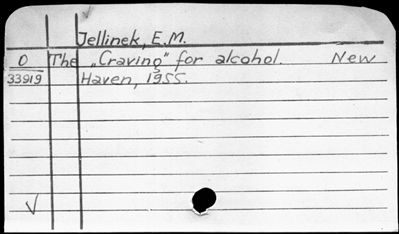 Jellinek, E.M.
O The „Craving" for alcohol. New
33919 Haven, 1955.